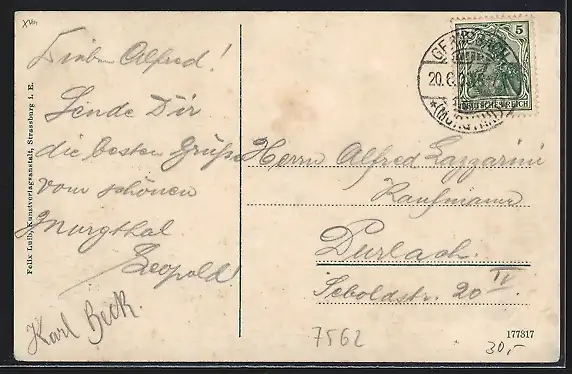 XVIII
Lieber Alfred!
Sende Dir
die besten Grüße
vom schönen
Murgthal.
Leopold!
Karl Beck.
Felix Luib, Kunstverlagsanstalt, Strassburg i. E.
5
DEUTSCHES REICH
GERNSBACH
20.6.
*(MURGTHAL)*
Herrn Alfred Lazzarini
Kaufmann
Durlach.
Seboldstr. 20 IV
7562
177817
30,-